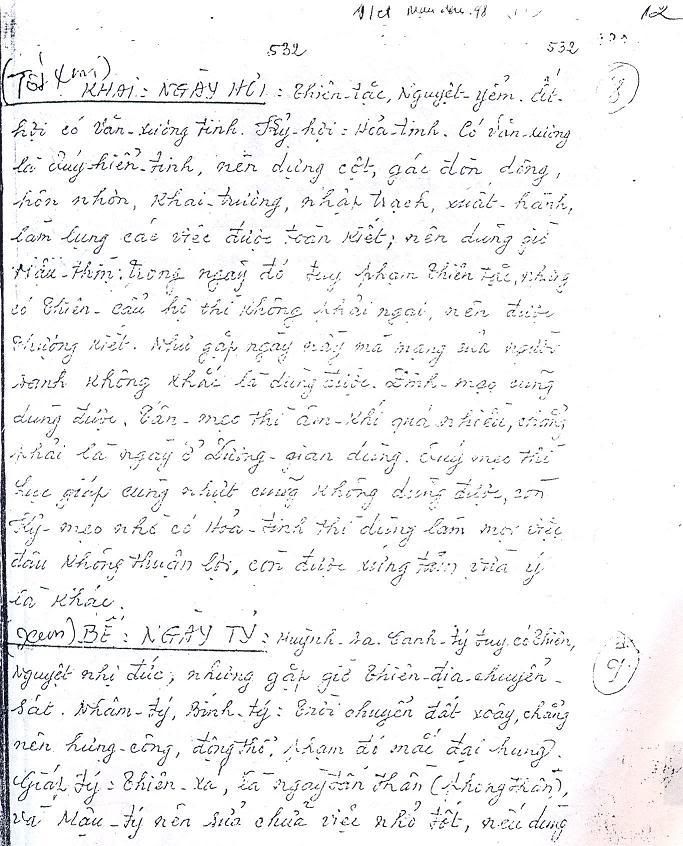 12
532 532
(Tốt Xấu) KHAI: NGÀY HỢI: Thiên-tặc, Nguyệt-yểm. Ất- 8
hợi có Văn-xương tinh. Kỷ-hợi: Hỏa-tinh. Có Văn-xương
là Quý-hiển-tinh, nên dựng cột, gác đòn dông,
hôn nhơn, Khai-trương, nhập trạch, xuất-hành,
làm lụng các việc được toàn Kiết; nên dùng giờ
Mậu-thìn; trong ngày đó tuy phạm Thiên tặc, nhưng
có Thiên-cẩu hộ thì không phải ngại, nên được
thường Kiết. Như gặp ngày này mà mạng của người
sanh không khắc là dùng được. Đinh-mẹo cũng
dùng được. Tân-mẹo thì âm-khí quá nhiều, chẳng
phải là ngày ở Dương-gian dùng. Quý mẹo thì
Lục giáp cùng nhựt cũng không dùng được, còn
Kỷ-mẹo nhờ có Hỏa-tinh thì dùng làm mọi việc
đâu không thuận lợi, còn được xứng tâm vừa ý
là khác.
(Xem) BẾ: NGÀY TÝ: Huỳnh-sa. Canh-tý tuy có Thiên, 9
Nguyệt nhị đức, nhưng gặp giờ Thiên-địa-chuyển-
sát. Nhâm-tý, Bính-tý: Trời chuyển đất xoay, chẳng
nên hưng-công, động thổ, phạm đó mắc đại hung.
Giáp tý: Thiên-xá, là ngày tấn thần (phong thần),
và Mậu-tý nên sửa chữa việc nhỏ tốt, nếu dùng